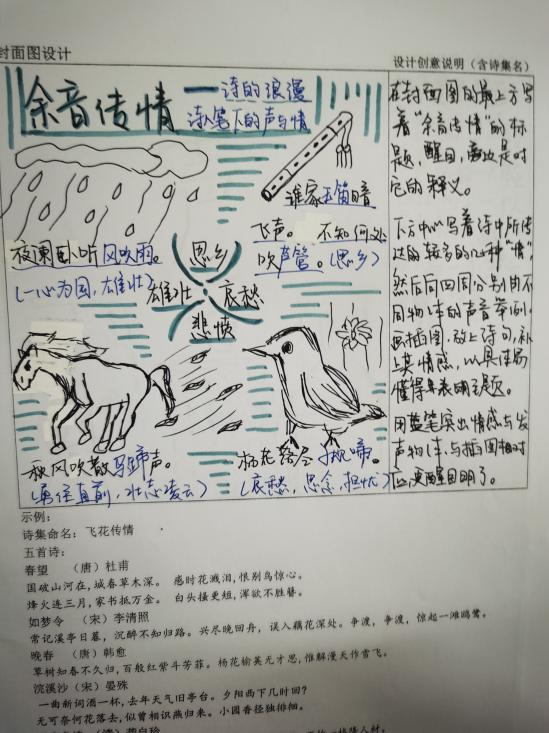 封面图设计
设计创意说明（含诗集名）
余音传情
一诗的浪漫
诗人笔下的声与情
谁家玉笛暗
飞声。不知何处
吹芦管。（思乡）
夜阑卧听风吹雨。
（一心为国，雄壮）
思乡
雄壮
哀愁
悲愤
秋风吹散马蹄声。
（勇往直前，壮志凌云）
杨花落尽子规啼。
（哀愁，思念，担忧）
在封面图的最上方写
着“余音传情”的标
题，醒目，旁边是对
它的释义。
下方中心写着诗中所传
达的较多的几种“情”，
然后向四周分别由不
同物体的声音举例，
画插图，放上诗句，补
上其情感，以具体易
懂得来表明主题。
用蓝笔突出情感与发
声物体，与插图相对
应，更醒目明了。
示例：
诗集命名：飞花传情
五首诗：
春望 （唐）杜甫
国破山河在，城春草木深。 感时花溅泪，恨别鸟惊心。
烽火连三月，家书抵万金。 白头搔更短，浑欲不胜簪。
如梦令 （宋）李清照
常记溪亭日暮，沉醉不知归路。兴尽晚回舟，误入藕花深处。争渡，争渡，惊起一滩鸥鹭。
晚春 （唐）韩愈
草树知春不久归，百般红紫斗芳菲。杨花榆荚无才思，惟解漫天作雪飞。
浣溪沙（宋）晏殊
一曲新词酒一杯，去年天气旧亭台。夕阳西下几时回？
无可奈何花落去，似曾相识燕归来。小园香径独徘徊。